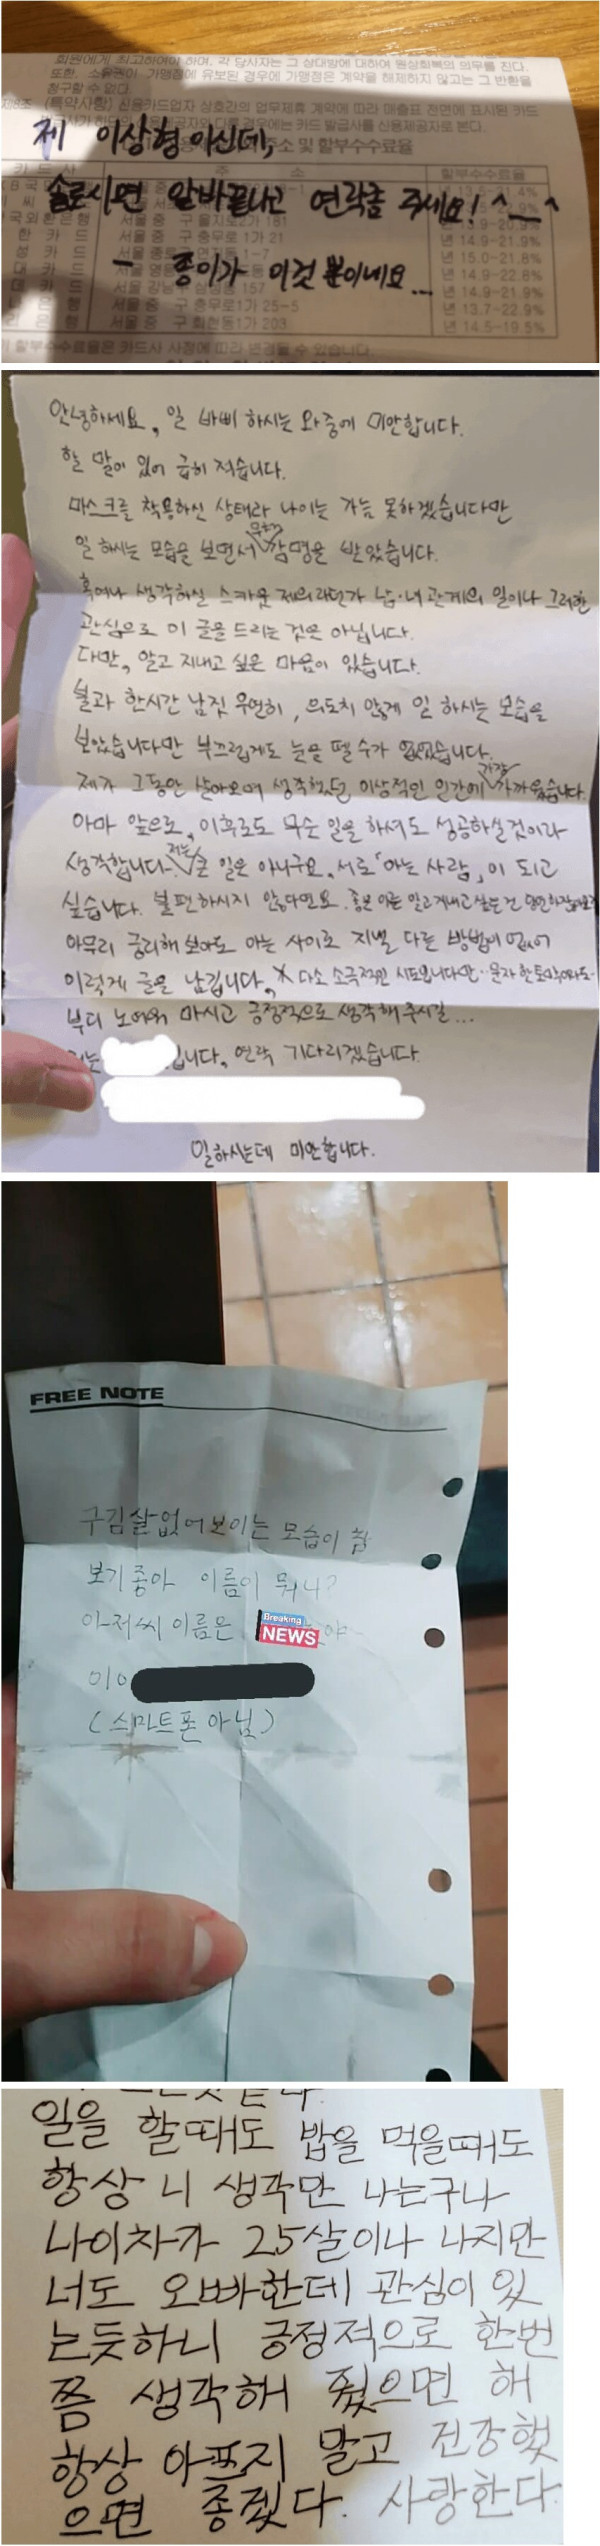 회원에게 최고하여야 하며, 각 당사자는 그 상대방에 대하여 원상회복의 의무를 진다.
또한, 소유권이 가맹점에 유보된 경우에 가맹점은 계약을 해제하지 않고는 그 반환을
청구할 수 없다.
(특약사항) 신용카드업자 상호간의 업무제휴 계약에 따라 매출표 전면에 표시된 카드
경우에는 카드 발급사를 신용제공자로 본다.
주소 및 할부수수료율
제 이상형이신데,
카 드 사 주 소 할부수수료율
솔로시면 알바끝나고 연락좀 주세요! ^__^
국외환은행 서울 중 구 을지로2가 181 년 13.9-20.9%
한 카 드 서울 중 구 충무로 1가 21 년 14.9-21.9%
성 카 드 서울 종로구 1-7 년 15.0-21.8%
- 종이가 이것 뿐이네요...
대 카 드 서울 년 14.9-22.8%
데 카 드 서울 강남 157 년 14.9-21.9%
서울 중 구 충무로1가 25-5 년 13.7-22.9%
서울 중 구 회현동1가 203 년 14.5-19.5%
할부수수료율은 카드사 사정에 따라 변경될 수 있습니다
안녕하세요, 일 바삐 하시는 와중에 미안합니다.
할 말이 있어 급히 적습니다.
마스크를 착용하신 상태라 나이는 가늠 못하겠습니다만
일 하시는 모습을 보면서 무척 감명을 받았습니다.
혹여나 생각하실 스카웃 제의라던가 남·녀 관계의 일이나 그러한
관심으로 이 글을 드리는 것은 아닙니다.
다만, 알고 지내고 싶은 마음이 있습니다.
불과 한시간 남짓 우연히, 의도치 않게 일 하시는 모습을
보았습니다만 부끄럽게도 눈을 뗄 수가 없었습니다.
제가 그동안 살아오며 생각했던 이상적인 인간에 가장 가까웠습니다.
아마 앞으로, 이후로도 무슨 일을 하셔도 성공하실 것이라
생각합니다. 저는 큰 일은 아니구요, 서로 「아는 사람」이 되고
싶습니다. 불편하시지 않다면요. 좋은 이를 알고 지내고 싶은 건 당연하잖아요?
아무리 궁리해 보아도 아는 사이로 지낼 다른 방법이 없어
이렇게 글을 남깁니다. * 다소 소극적인 시도입니다만.. 문자 한 통이라도..
부디 노여워 마시고 긍정적으로 생각해 주시길...
입니다. 연락 기다리겠습니다.
일하시는데 미안합니다.
FREE NOTE
구김살 없어보이는 모습이 참
보기좋아 이름이 뭐니?
아저씨 이름은 Breaking NEWS 야
010
(스마트폰 아님)
일을 할때도 밥을 먹을때도
항상 니 생각만 나는구나
나이차가 25살이나 나지만
너도 오빠한데 관심이 있
는듯하니 긍정적으로 한번
쯤 생각해 줬으면 해
항상 아프지 말고 건강했
으면 좋겠다. 사랑한다.